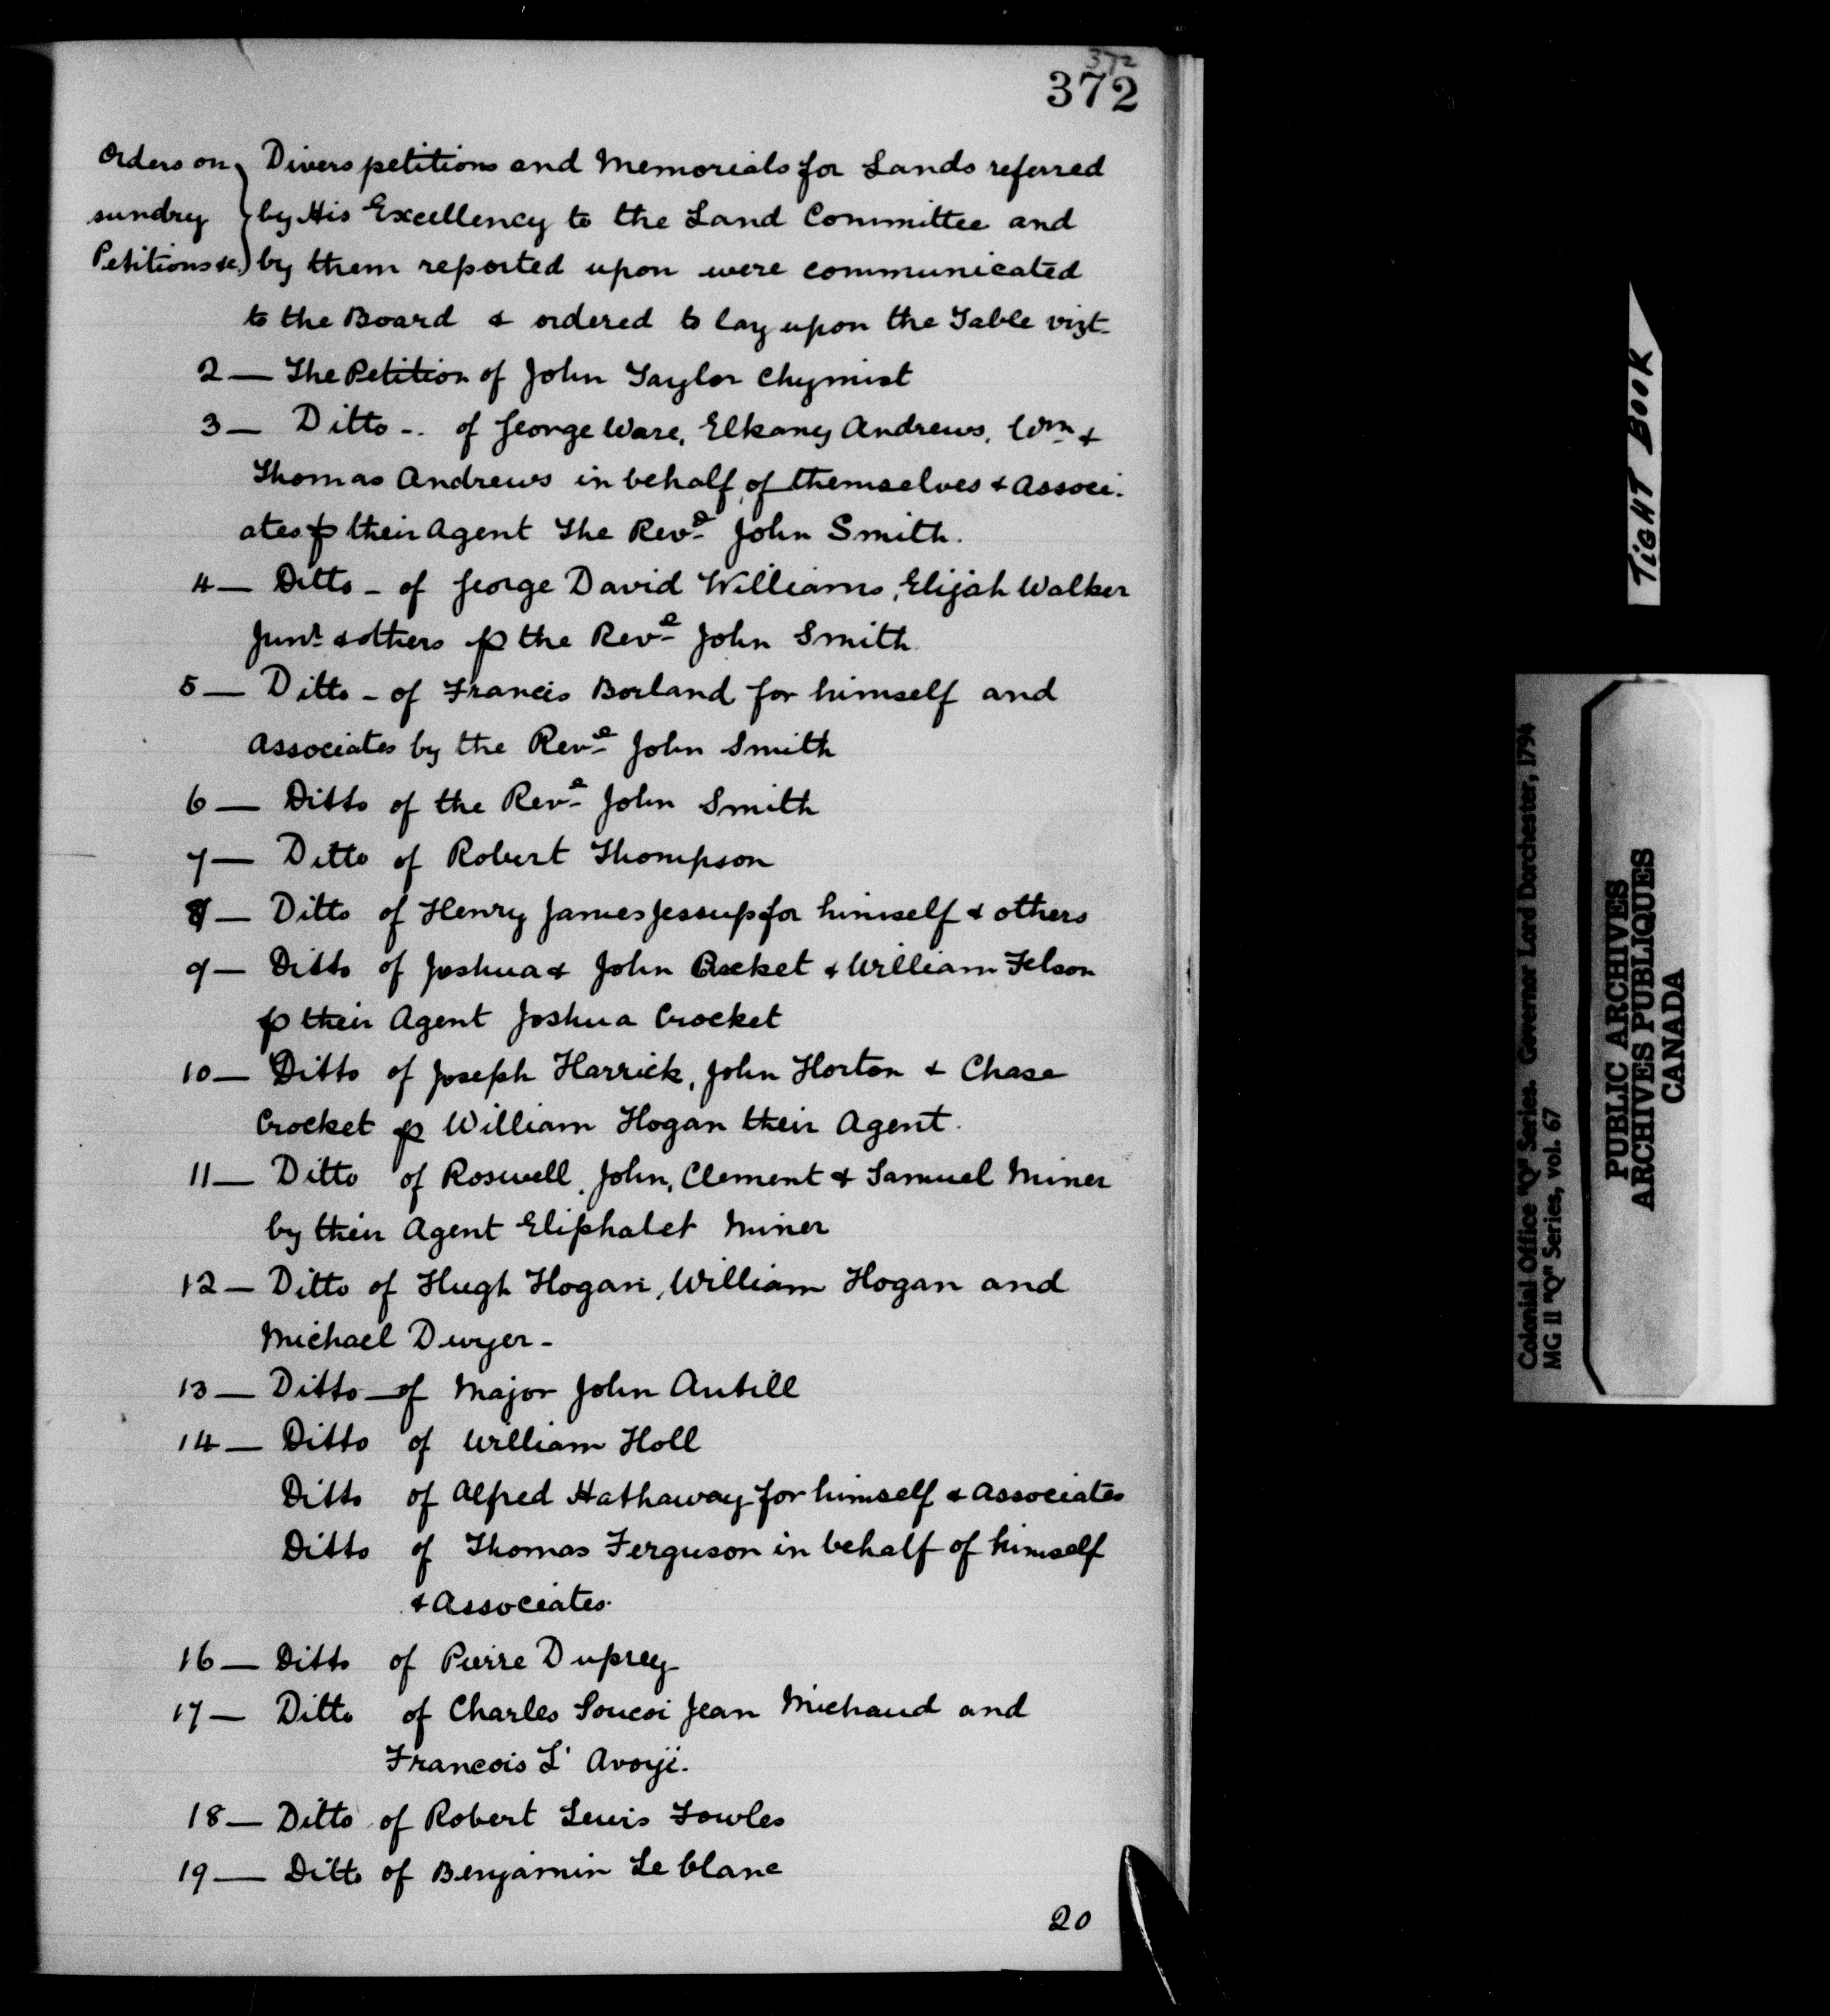 372
372
Orders on } Divers petitions and Memorials for Lands referred
sundry } by His Excellency to the Land Committee and
Petitions &c. } by them reported upon were communicated
to the Board & ordered to lay upon the Table vizt.
2 — The Petition of John Taylor Chymist
3 — Ditto -. of George Ware, Elkany Andrews, Wm &
Thomas Andrews in behalf of themselves & Associ-
ates ⅌ their Agent The Revd John Smith.
4 — Ditto - of George David Williams, Elijah Walker
Junr & others ⅌ the Revd John Smith.
5 — Ditto - of Francis Borland for himself and
Associates by the Revd John Smith
6 — Ditto of the Revd John Smith
7 — Ditto of Robert Thompson
8 — Ditto of Henry James Jessup for himself & others
9 — Ditto of Joshua & John Crocket & William Felson
⅌ their Agent Joshua Crocket
10 — Ditto of Joseph Harrick, John Horton & Chase
Crocket ⅌ William Hogan their Agent.
11 — Ditto of Roswell, John, Clement & Samuel Miner
by their Agent Eliphalet Miner
12 — Ditto of Hugh Hogan, William Hogan and
Michael Dwyer -
13 — Ditto — of Major John Antill
14 — Ditto of William Holl
Ditto of Alfred Hathaway for himself & Associates
Ditto of Thomas Ferguson in behalf of himself
& Associates.
16 — Ditto of Pierre Duprey
17 — Ditto of Charles Soucoi Jean Michaud and
Francois L'Avoyé.
18 — Ditto of Robert Lewis Fowles
19 — Ditto of Benjamin Le blanc
20
TIGHT BOOK
Colonial Office "Q" Series. Governor Lord Dorchester, 1794
MG 11 "Q" Series, vol. 67
PUBLIC ARCHIVES
ARCHIVES PUBLIQUES
CANADA